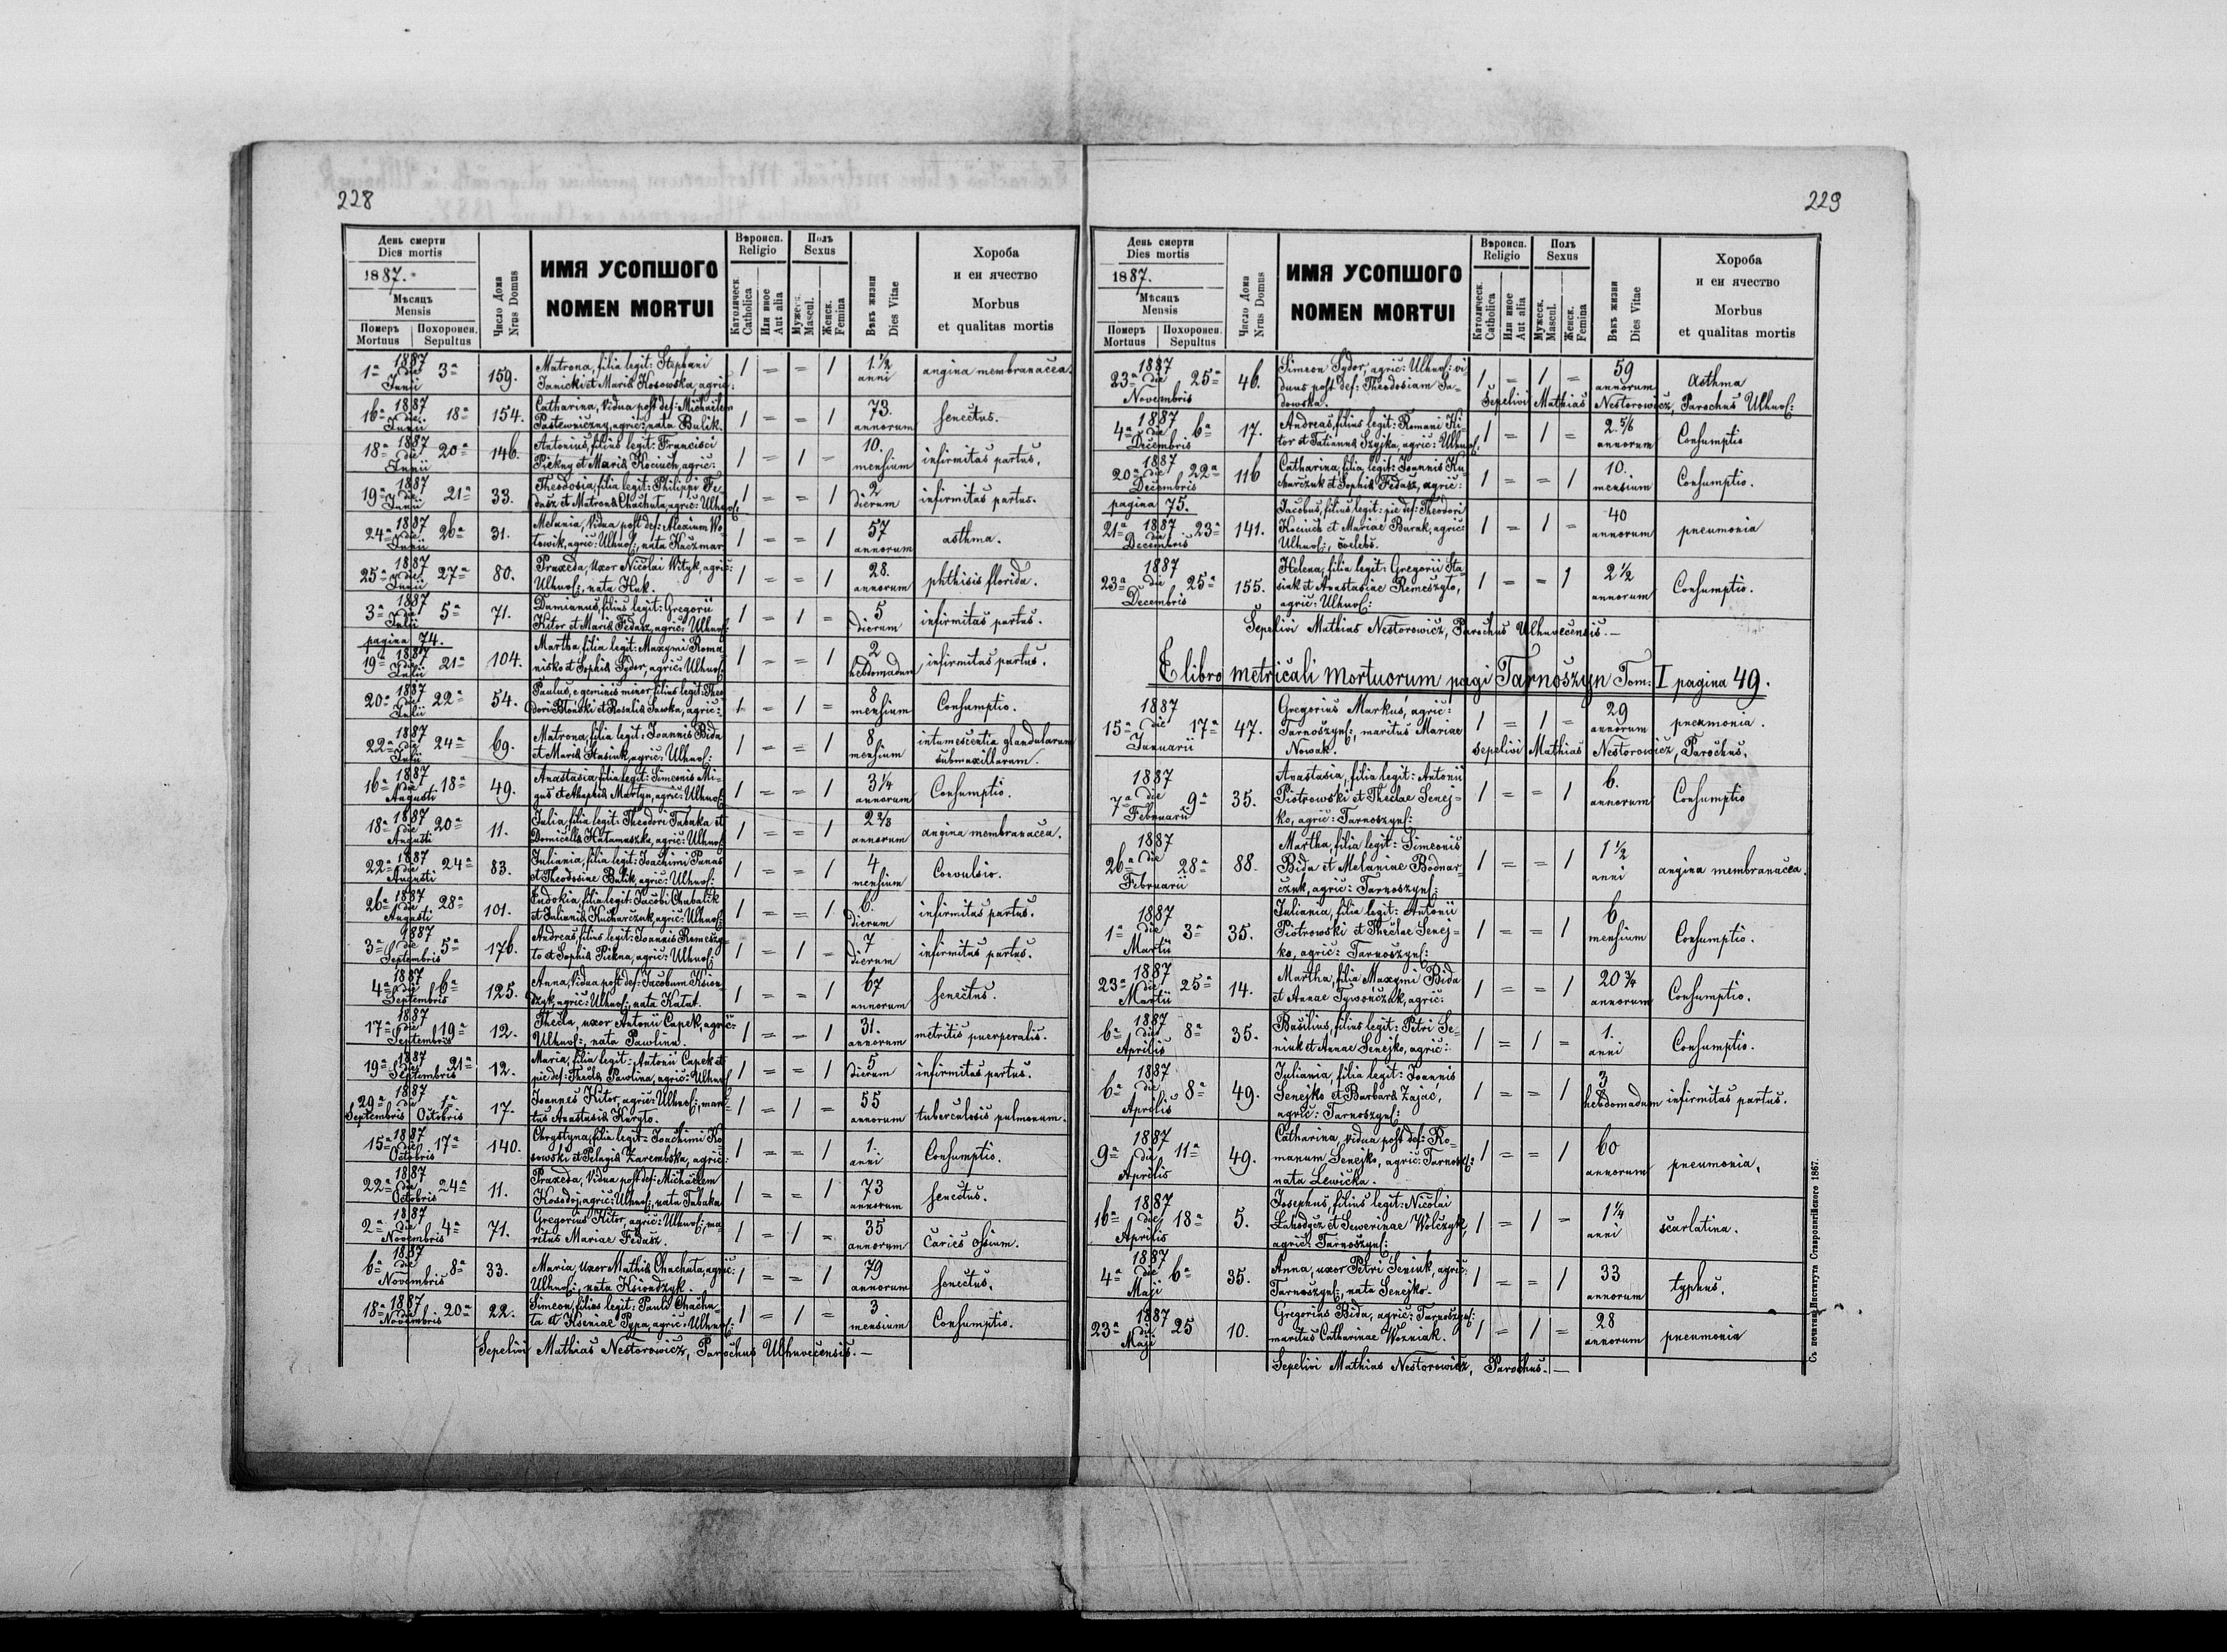 228
День смерти
Dies mortis
1887.
Мѣсяцъ
Mensis
Померъ
Mortuus
Похоронен.
Sepultus
Число Дома
Nrus Domus
ИМЯ УСОПШОГО
NOMEN MORTUI
Вѣроисп.
Religio
Католическ.
Catholica
Или иное
Aut alia
Полъ
Sexus
Мужеск.
Mascul.
Женск.
Femina
Вѣкъ жизни
Dies Vitae
Хороба
и еи ячество
Morbus
et qualitas mortis
1887
1a die 3a Junii 159. Matrona, filia legit: Stephani 1 = = 1 1 1/2 anni angina membranacea.
Janicki et Maria Kosowska, agric:
1887
16a die 18a Junii 154. Catharina, vidua post def: Michaelem 1 = = 1 73. annorum senectus.
Pastewniczny, agric: nata Bulik.
1887
18a die 20a Junii 146. Antonius, filius legit: Francisci 1 = 1 = 10. mensium infirmitas partus.
Piekny et Maria Kociuch, agric:
1887
19a die 21a Junii 33. Theodosia, filia legit: Philippi Fe- 1 = = 1 2 dierum infirmitas partus.
dasz et Matrona Chachuta, agric: Ulhnof:
1887
24a die 26a Junii 31. Melania, Vidua post def: Alexium Wo- 1 = = 1 57 annorum asthma.
towik, agric: Ulhnof:, nata Kaczmar
1887
25a die 27a Junii 80. Praxeda, uxor Nicolai Wityk, agric: 1 = = 1 28. annorum phthisis florida.
Ulhnof:, nata Huk.
1887
3a die 5a Julii 71. Damianus, filius legit: Gregorii 1 = 1 = 5 dierum infirmitas partus.
Kitor et Maria Fedasz, agric: Ulhnof:
pagina 74.
1887
19a die 21a Julii 104. Martha, filia legit: Maxymi Roma- 1 = = 1 2 hebdomadum infirmitas partus.
nisko et Sophia Sydor, agric: Ulhnof:
1887
20a die 22a Julii 54. Paulus, e geminis minor filius legit: Theo- 1 = 1 = 8 mensium Consumptio.
dori Błoński et Rosalia Sawka, agric:
1887
22a die 24a Julii 69. Matrona, filia legit: Joannis Bida 1 = = 1 8 mensium intumescentia glandularum
et Maria Stasiuk, agric: Ulhnof: submaxillarum.
1887
16a die 18a Augusti 49. Anastasia, filia legit: Simeonis Mi- 1 = = 1 3 1/4 annorum Consumptio.
gus et Ahaphia Martyn, agric: Ulhnof:
1887
18a die 20a Augusti 11. Julia, filia legit: Theodori Tabaka et 1 = = 1 2 2/3 annorum angina membranacea.
Domicella Hałamaszka, agric: Ulhnof:
1887
22a die 24a Augusti 83. Juliania, filia legit: Joachimi Panas 1 = = 1 4 mensium Convulsio.
et Theodosiae Bulik, agric: Ulhnof:
1887
26a die 28a Augusti 101. Eudokia, filia legit: Jacobi Chabalik 1 = = 1 6. dierum infirmitas partus.
et Juliania Kucharczuk, agric: Ulhnof:
1887
3a die 5a Septembris 176. Andreas, filius legit: Joannis Remeszy- 1 = 1 = 7 dierum infirmitas partus.
to et Sophia Piekna, agric: Ulhnof:
1887
4a die 6a Septembris 125. Anna, Vidua post def: Jacobum Ksion- 1 = = 1 67 annorum senectus.
dzyk, agric: Ulhnof:, nata Hałat.
1887
17a die 19a Septembris 12. Thecla, uxor Antonii Capek, agric: 1 = = 1 31. annorum metritis puerperalis.
Ulhnof:, nata Pawlina.
1887
19a die 21a Septembris 12. Maria, filia legit: Antonii Capek et 1 = = 1 5 dierum infirmitas partus.
pie def: Thecla Pawlina, agric: Ulhnof:
1887
29a die 1a Septembris Octobris 17. Joannes Kitor, agric: Ulhnof:, mari- 1 = 1 = 55 annorum tuberculosis pulmonum.
tus Anastasia Kuryło.
1887
15a die 17a Octobris 140. Chrystyna, filia legit: Joachimi Ko- 1 = = 1 1. anni Consumptio.
sowski et Pelagia Zarembska, agric:
1887
22a die 24a Octobris 11. Praxeda, Vidua post def: Michaelem 1 = = 1 73 annorum senectus.
Kosodoj, agric: Ulhnof:, nata Tabaka
1887
2a die 4a Novembris 71. Gregorius Kitor, agric: Ulhnof:, ma- 1 = 1 = 35 annorum Caries ossium.
ritus Mariae Fedasz.
1887
6a die 8a Novembris 33. Maria, uxor Mathia Chachuta, agric: 1 = = 1 79 annorum senectus.
Ulhnof:, nata Ksiondzyk.
1887
18a die 20a Novembris 22. Simeon, filius legit: Pauli Chachu- 1 = 1 = 3 mensium Consumptio.
ta et Kseniae Pypa, agric: Ulhnof:
Sepelivi Mathias Nestorowicz, Parochus Ulhnvecensis. —
229
День смерти
Dies mortis
1887.
Мѣсяцъ
Mensis
Померъ
Mortuus
Похоронен.
Sepultus
Число Дома
Nrus Domus
ИМЯ УСОПШОГО
NOMEN MORTUI
Вѣроисп.
Religio
Католическ.
Catholica
Или иное
Aut alia
Полъ
Sexus
Мужеск.
Mascul.
Женск.
Femina
Вѣкъ жизни
Dies Vitae
Хороба
и еи ячество
Morbus
et qualitas mortis
1887
23a die 25a Novembris 46. Simeon Sydor, agric: Ulhnof: vi- 1 = 1 = 59 annorum Asthma
duus post def: Theodosiam Sa-
dowska. Sepelivi Mathias Nestorowicz, Parochus Ulhnof:
1887
4a die 6a Decembris 17. Andreas, filius legit: Romani Ki- 1 = 1 = 2 5/6 annorum Consumptio
tor et Tatianna Szyjka, agric: Ulhnof:
1887
20a die 22a Decembris 116 Catharina, filia legit: Joannis Ku- 1 = = 1 10. mensium Consumptio.
charczuk et Sophia Fedasz, agric:
pagina 75.
1887
21a die 23a Decembris 141. Jacobus, filius legit: pie def: Theodori 1 = 1 = 40 annorum pneumonia
Kociuch et Mariae Burak, agric:
Ulhnof:, coelebs.
1887
23a die 25a Decembris 155. Helena, filia legit: Gregorii Sta- 1 = = 1 2 1/2 annorum Consumptio.
siuk et Anastasiae Remeszyło,
agric: Ulhnof:
Sepelivi Mathias Nestorowicz, Parochus Ulhnvecensis. —
E libro metricali mortuorum pagi Tarnoszyn Tom: I pagina 49.
1887
15a die 17a Januarii 47. Gregorius Markuś, agric: 1 = 1 = 29 annorum pneumonia.
Tarnoszyns:, maritus Mariae
Nowak. sepelivi Mathias Nestorowicz, Parochus.
1887
7a die 9a Februarii 35. Anastasia, filia legit: Antonii 1 = = 1 6. annorum Consumptio
Piotrowski et Theclae Senej-
ko, agric: Tarnoszyns:
1887
26a die 28a Februarii 88. Martha, filia legit: Simeonis 1 = = 1 1 1/2 anni angina membranacea.
Bida et Melaniae Bodnar-
czuk, agric: Tarnoszyns:
1887
1a die 3a Martii 35. Juliania, filia legit: Antonii 1 = = 1 6 mensium Consumptio.
Piotrowski et Theclae Senej-
ko, agric: Tarnoszyns:
1887
23a die 25a Martii 14. Martha, filia Maxymi Bida 1 = = 1 20 3/4 annorum Consumptio.
et Annae Tywończuk, agric:
1887
6a die 8a Aprilis 35. Basilius, filius legit: Petri Se- 1 = 1 = 1. anni Consumptio.
niuk et Annae Senejko, agric:
1887
6a die 8a Aprilis 49. Juliania, filia legit: Joannis 1 = = 1 3 hebdomadum infirmitas partus.
Senejko et Barbara Zając,
agric: Tarnoszyns:
1887
9a die 11a Aprilis 49. Catharina, vidua post def: Ro- 1 = = 1 60 annorum pneumonia.
manum Senejko, agric: Tarnosz:
nata Lewicka.
1887
16a die 18a Aprilis 5. Josephus, filius legit: Nicolai 1 = 1 = 1 1/4 anni scarlatina.
Łahodycz et Sewerinae Wolczyk,
agric: Tarnoszyns:
1887
4a die 6a Maji 35. Anna, uxor Petri Seniuk, agric: 1 = = 1 33 annorum typhus.
Tarnoszyns:, nata Senejko.
1887
23a die 25 Maji 10. Gregorius Bida, agric: Tarnoszyns: 1 = 1 = 28 annorum pneumonia
maritus Catharinae Woźniak.
Sepelivi Mathias Nestorowicz, Parochus. —
Съ печатни Института Ставропигійского 1867.